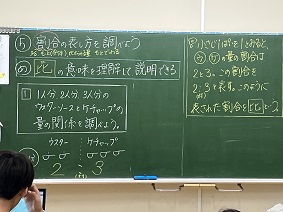 ⑤ 割合の表し方を調べよう
め 比の意味を理解して説明できる
1 1人分、2人分、3人分の
ウスターソースとケチャップの
量の関係を調べよう。
ウスター : ケチャップ
2 : 3
とると、
の量の割合は
2と3。この割合を
2:3と表す。このように
表された割合を比という